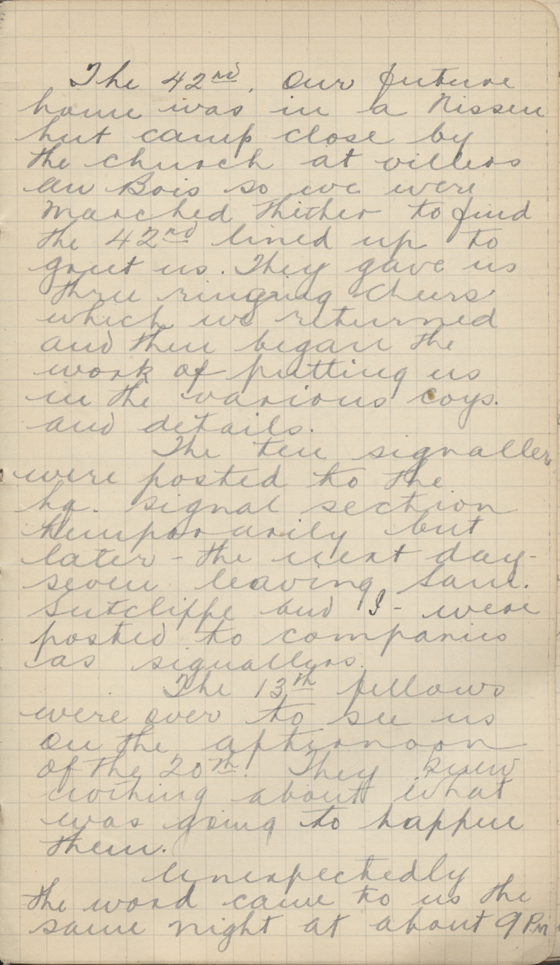 The 42nd. Our future
home was in a Nissen
hut camp close by
the church at villers
au Bois so we were
marched thither to find
the 42nd lined up to
greet us. They gave us
three ringing cheers
which we returned
and then began the
work of putting us
in the various coys.
and details.
The ten signallers
were posted to the
hq. signal section
temporarily but
later - the next day -
seven leaving Sam.
Sutcliffe and I - were
posted to companies
as signallers.
The 13th fellows
were over to see us
on the afternoon
of the 20th. They knew
nothing about what
was going to happen
them.
Unexpectedly
the word came to us the
same night at about 9 PM